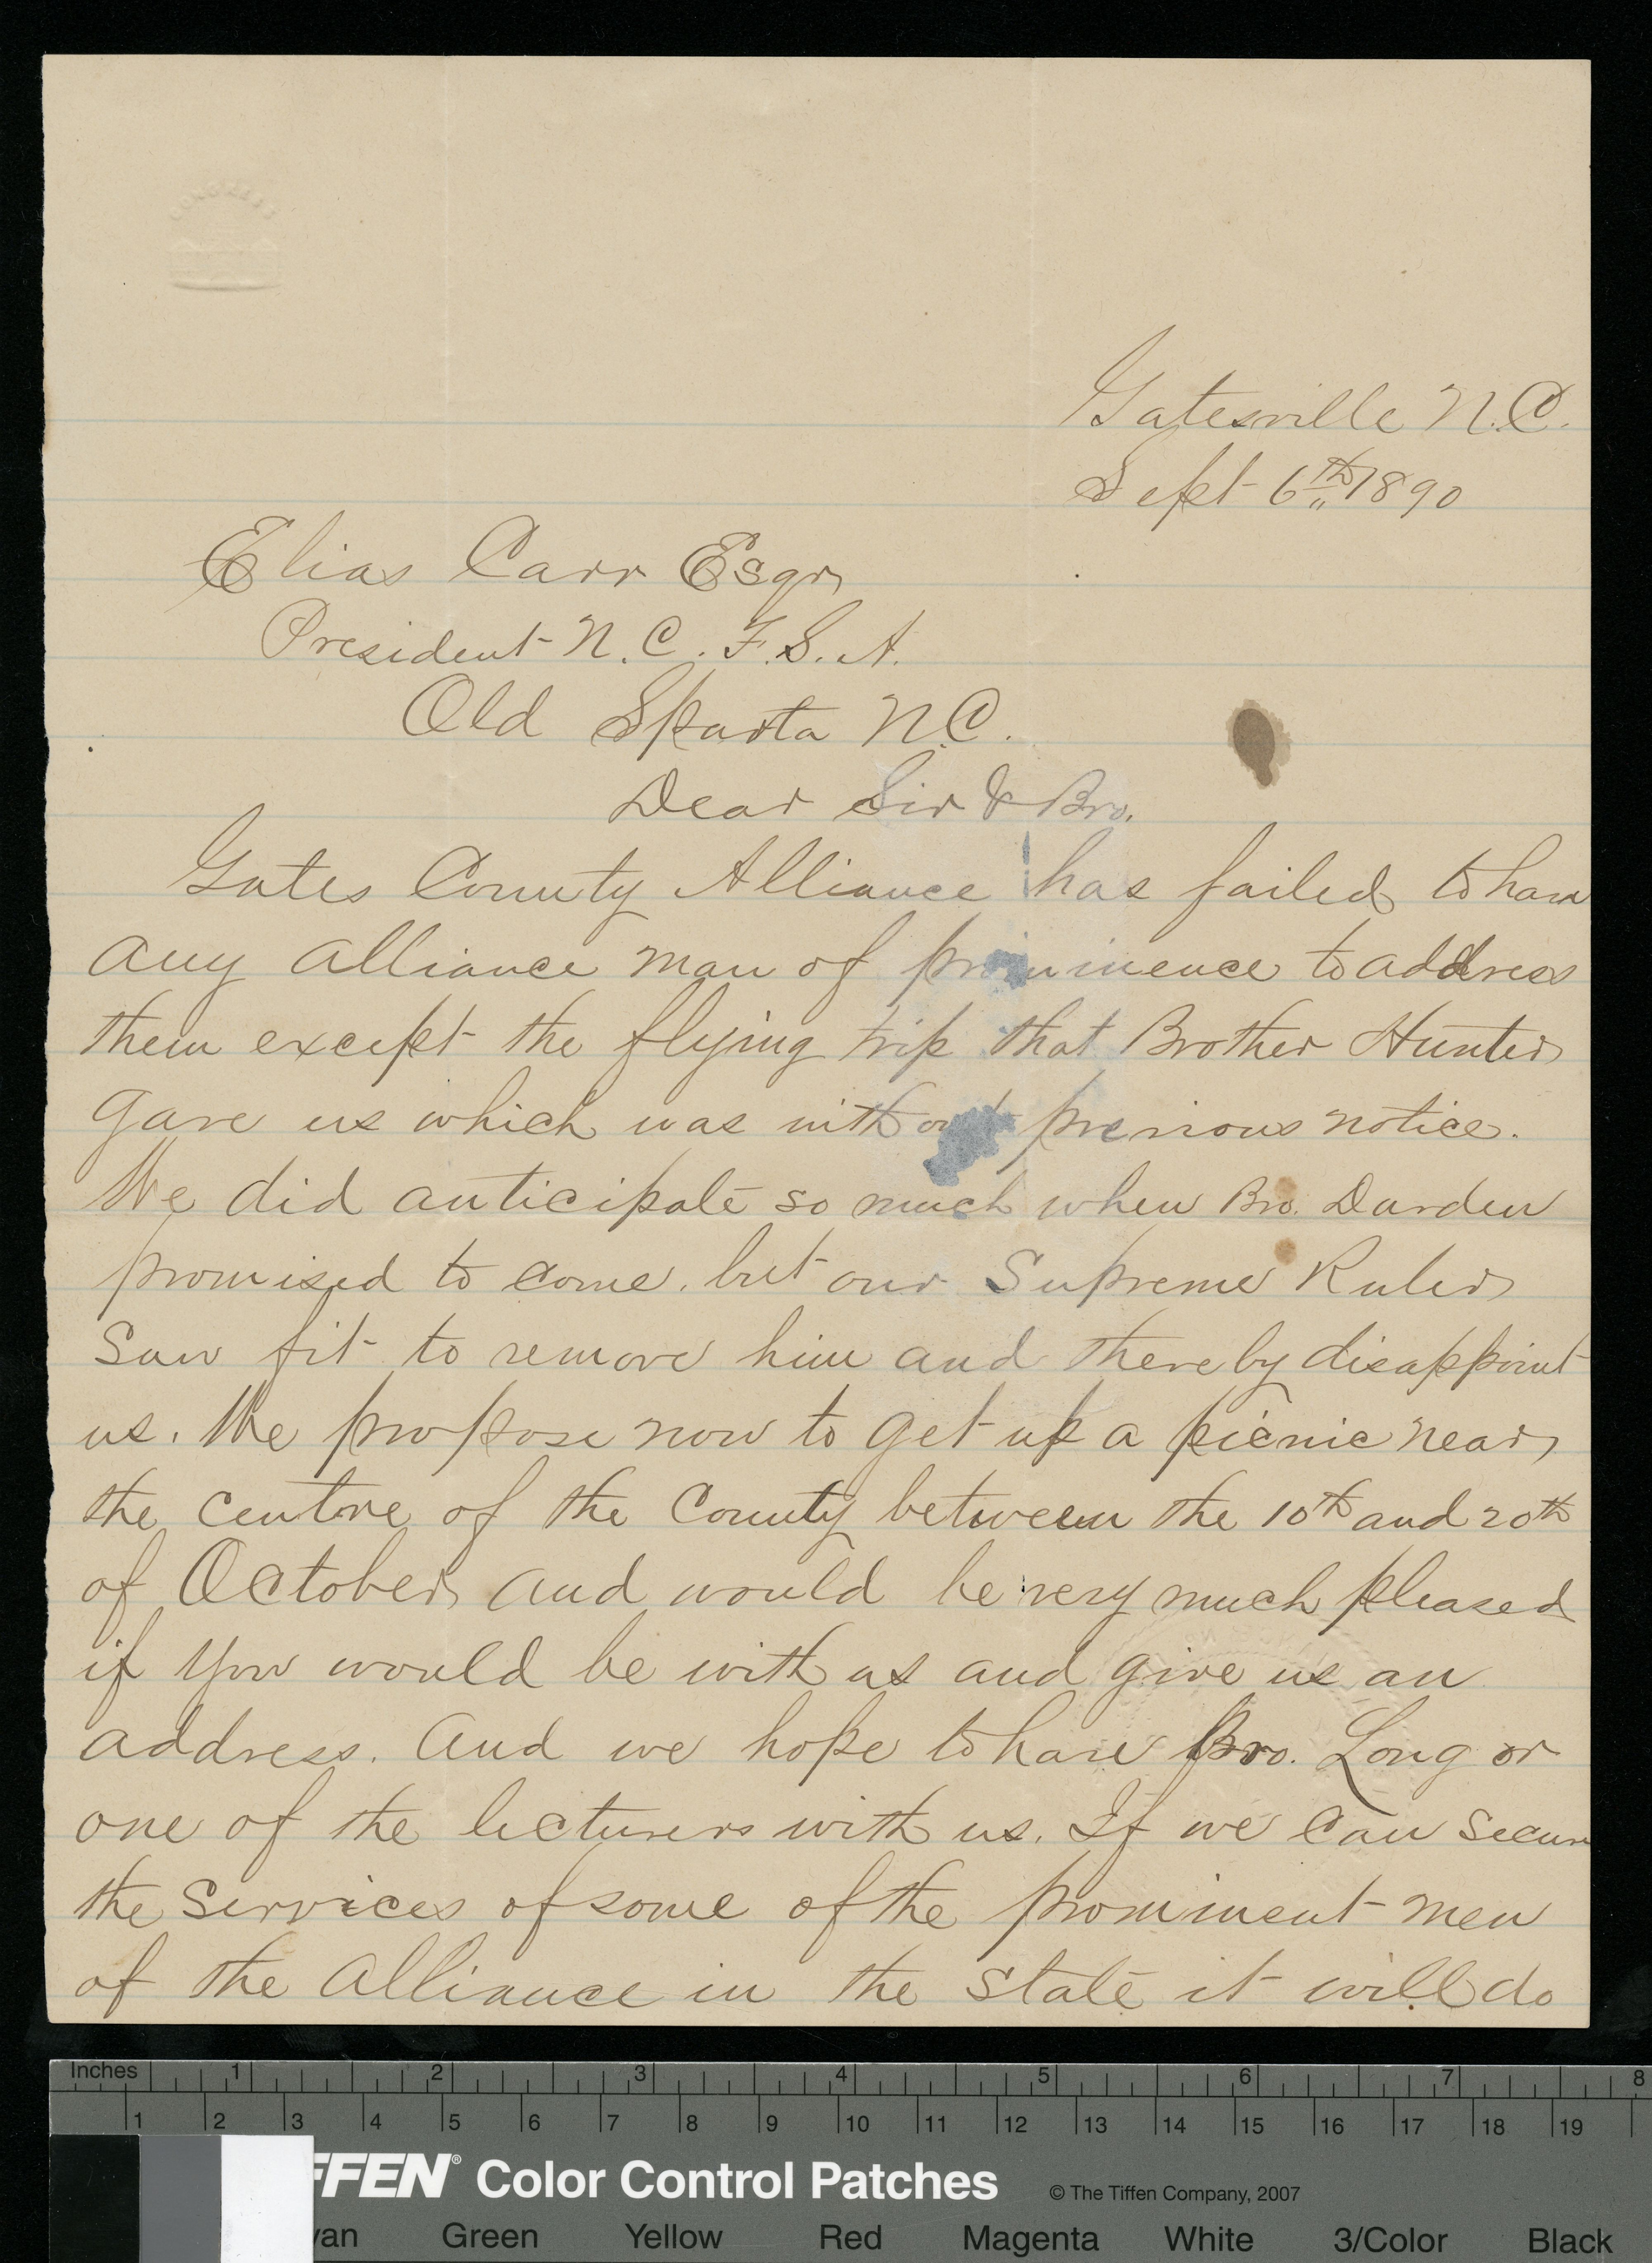 Gatesville N.C.
Sept 6th 1890
Elias Carr Esqr
President N.C. F.S.A.
Old Sparta N.C.
Dear Sir & Bro.
Gates County Alliance has failed to have
any alliance man of prominence to address
them except the flying trip that Brother Hunter
gave us which was without previous notice.
We did anticipate so much when Bro. Darden
promised to come, but our Supreme Ruler
Saw fit to remove him and thereby disappoint
us. We propose now to get up a picnic near
the centre of the County between the 10th and 20th
of October and would be very much pleased
if you would be with us and give us an
address. And we hope to have Bro. Long or
one of the lecturers with us. If we can secure
the services of some of the prominent men
of the Alliance in the state it will do
Inches 1 2 3 4 5 6 7 8
1 2 3 4 5 6 7 8 9 10 11 12 13 14 15 16 17 18 19
FFEN® Color Control Patches © The Tiffen Company, 2007
yan Green Yellow Red Magenta White 3/Color Black